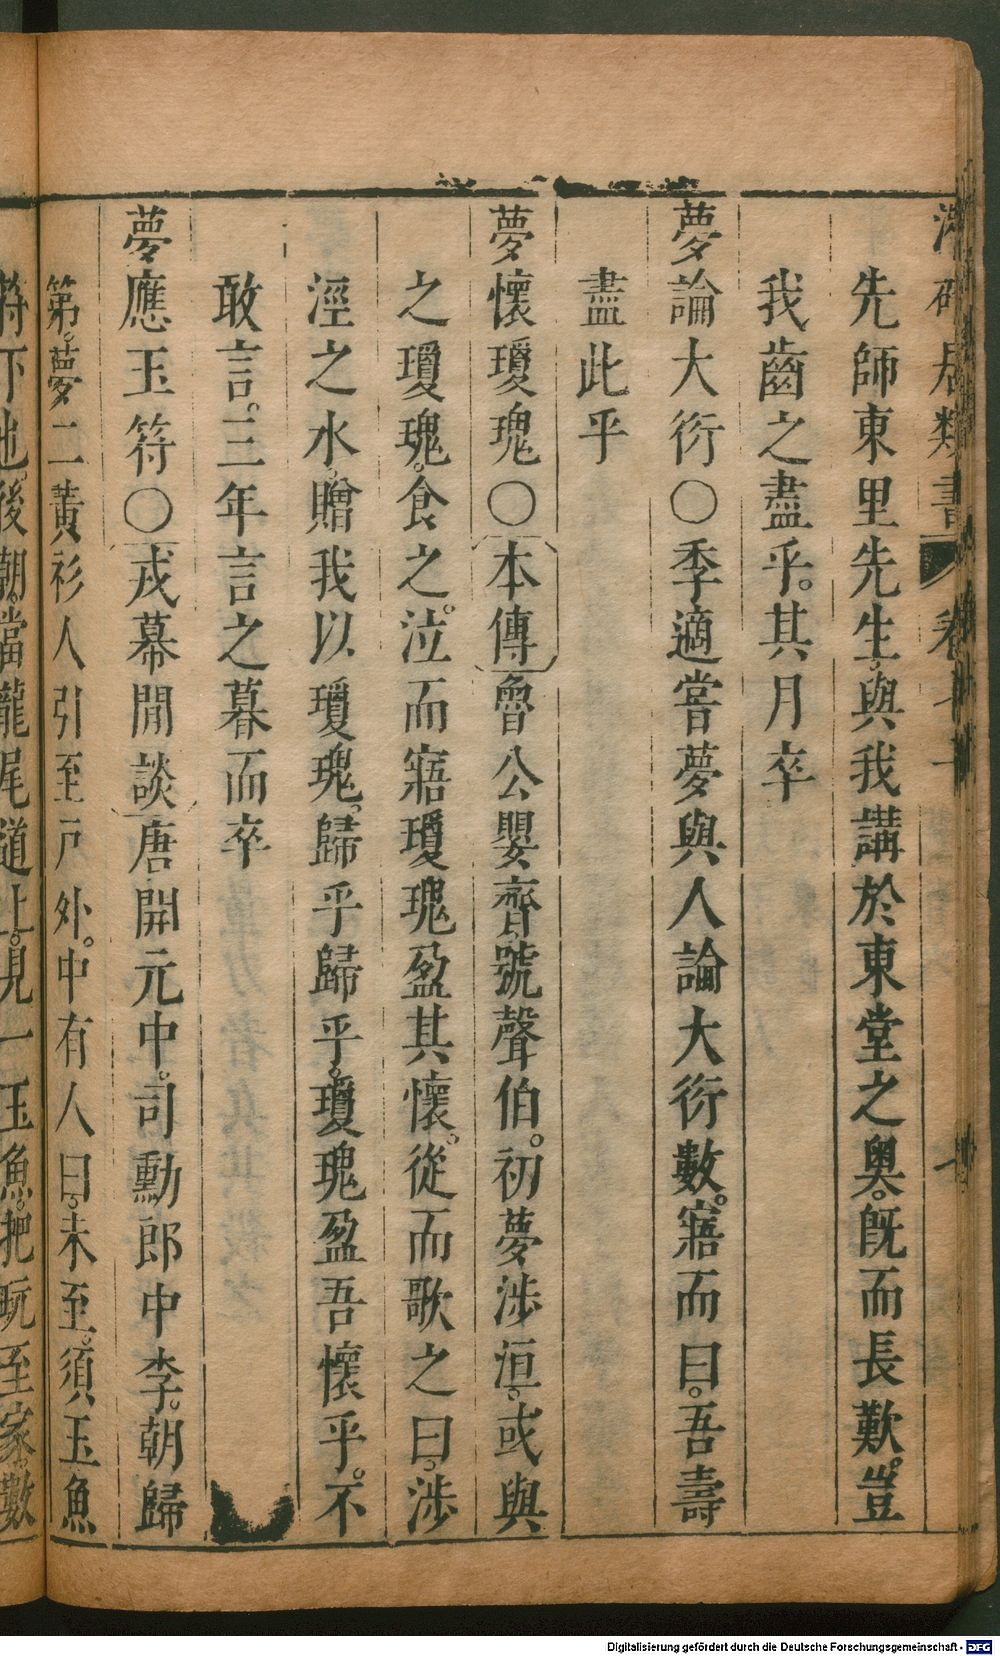 居類書
先師東里先生。與我講於東堂之奧。旣而長歎。豈
我齒之盡乎。其月卒
夢論大衍〇季適嘗夢與人論大衍數。寤而曰。吾壽
盡此乎
夢懷瓊瑰〇本傳魯公嬰齊。號聲伯。初夢涉洹。或與
之瓊瑰。食之。泣而寤瓊瑰盈其懷。從而歌之曰。涉
洹之水。贈我以瓊瑰。歸乎歸乎。瓊瑰盈吾懷乎。不
敢言。三年言之暮而卒
夢應玉符〇戎幕閒談唐開元中。司勳郎中李。朝歸
第。夢二黃衫人引至戶外。中有人曰。未至。須玉魚
符下也。後朝。當龍尾道上。見一玉魚。把玩至家。數
Digitalisierung gefördert durch die Deutsche Forschungsgemeinschaft - DFG